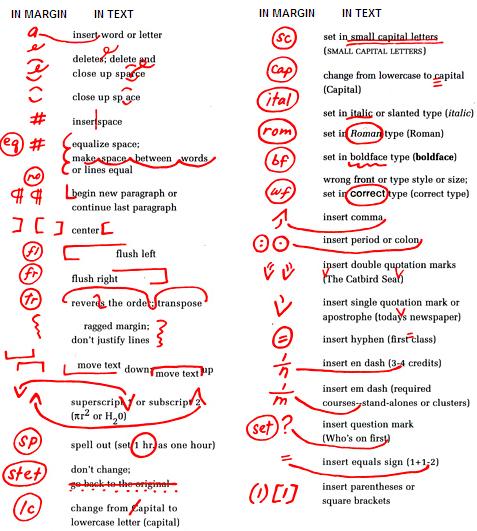 IN MARGIN IN TEXT
a insert word or letter
deletes; delete and
close up sparce
close up sp ace
# insert space
eq # equalize space;
make space between words
or lines equal
no
¶ ¶ begin new paragraph or
continue last paragraph
] [ ] center [
fl flush left
fr flush right
tr reveres the order; transpose
ragged margin;
don't justify lines
move text down; move text up
superscript 1 or subscript 2
(πr2 or H20)
sp spell out (set 1 hr. as one hour)
stet don't change;
go back to the original
lc change from Capital to
lowercase letter (capital)
IN MARGIN IN TEXT
sc set in small capital letters
(SMALL CAPITAL LETTERS)
cap change from lowercase to capital
(Capital)
ital set in italic or slanted type (italic)
rom set in Roman type (Roman)
bf set in boldface type (boldface)
wf wrong front or type style or size;
set in correct type (correct type)
insert comma
: . insert period or colon
insert double quotation marks
(The Catbird Seat)
insert single quotation mark or
apostrophe (todays newspaper)
= insert hyphen (first class)
1/n insert en dash (3-4 credits)
1/m insert em dash (required
courses-stand-alones or clusters)
set? insert question mark
(Who's on first)
= insert equals sign (1+1-2)
(1) [1] insert parentheses or
square brackets